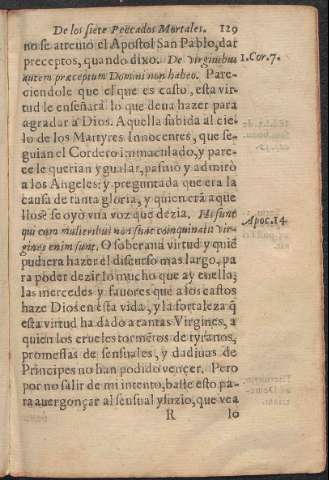 De los siete Peccados Mortales. 129
no se atreuio el Apostol San Pablo, dar
preceptos, quando dixo. De virginibus 1.Cor.7.
autem præceptum Domini non habeo. Pare-
ciendole que el que es casto, esta vir-
tud le enseñará lo que deua hazer para
agradar à Dios. Aquella subida al cie-
lo de los Martyres Innocentes, que se-
guian el Cordero immaculado, y pare-
ce le querian ygualar, pasmò y admirò
a los Angeles: y preguntada que era la
causa de tanta gloria, y quien erã aque
llos? se oyò vna voz que dezia. Hi sunt
qui cum mulieribus non sunt coinquinati: vir- Apoc.14.
gines enim sunt. O soberana virtud y quiẽ
pudiera hazer el discurso mas largo, pa
ra poder dezir lo mucho que ay en ella,
las mercedes y fauores que a los castos
haze Dios en esta vida, y la fortaleza q̃
esta virtud ha dado a tantas Virgines, a
quien los crueles tormẽtos de tyranos,
promessas de sensuales, y dadiuas de
Principes no han podido vencer. Pero
por no salir de mi intento, baste esto pa-
ra auergonçar al sensual y suzio, que vea
R lo